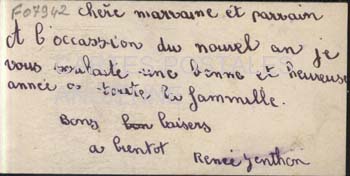 F07942 chère marraine et parrain
A l'occassion du nouvel an je
vous souhaite une bonne et heureuse
année a toute la fammille.
Bons bon baisers
a bientot Renée Jenthon